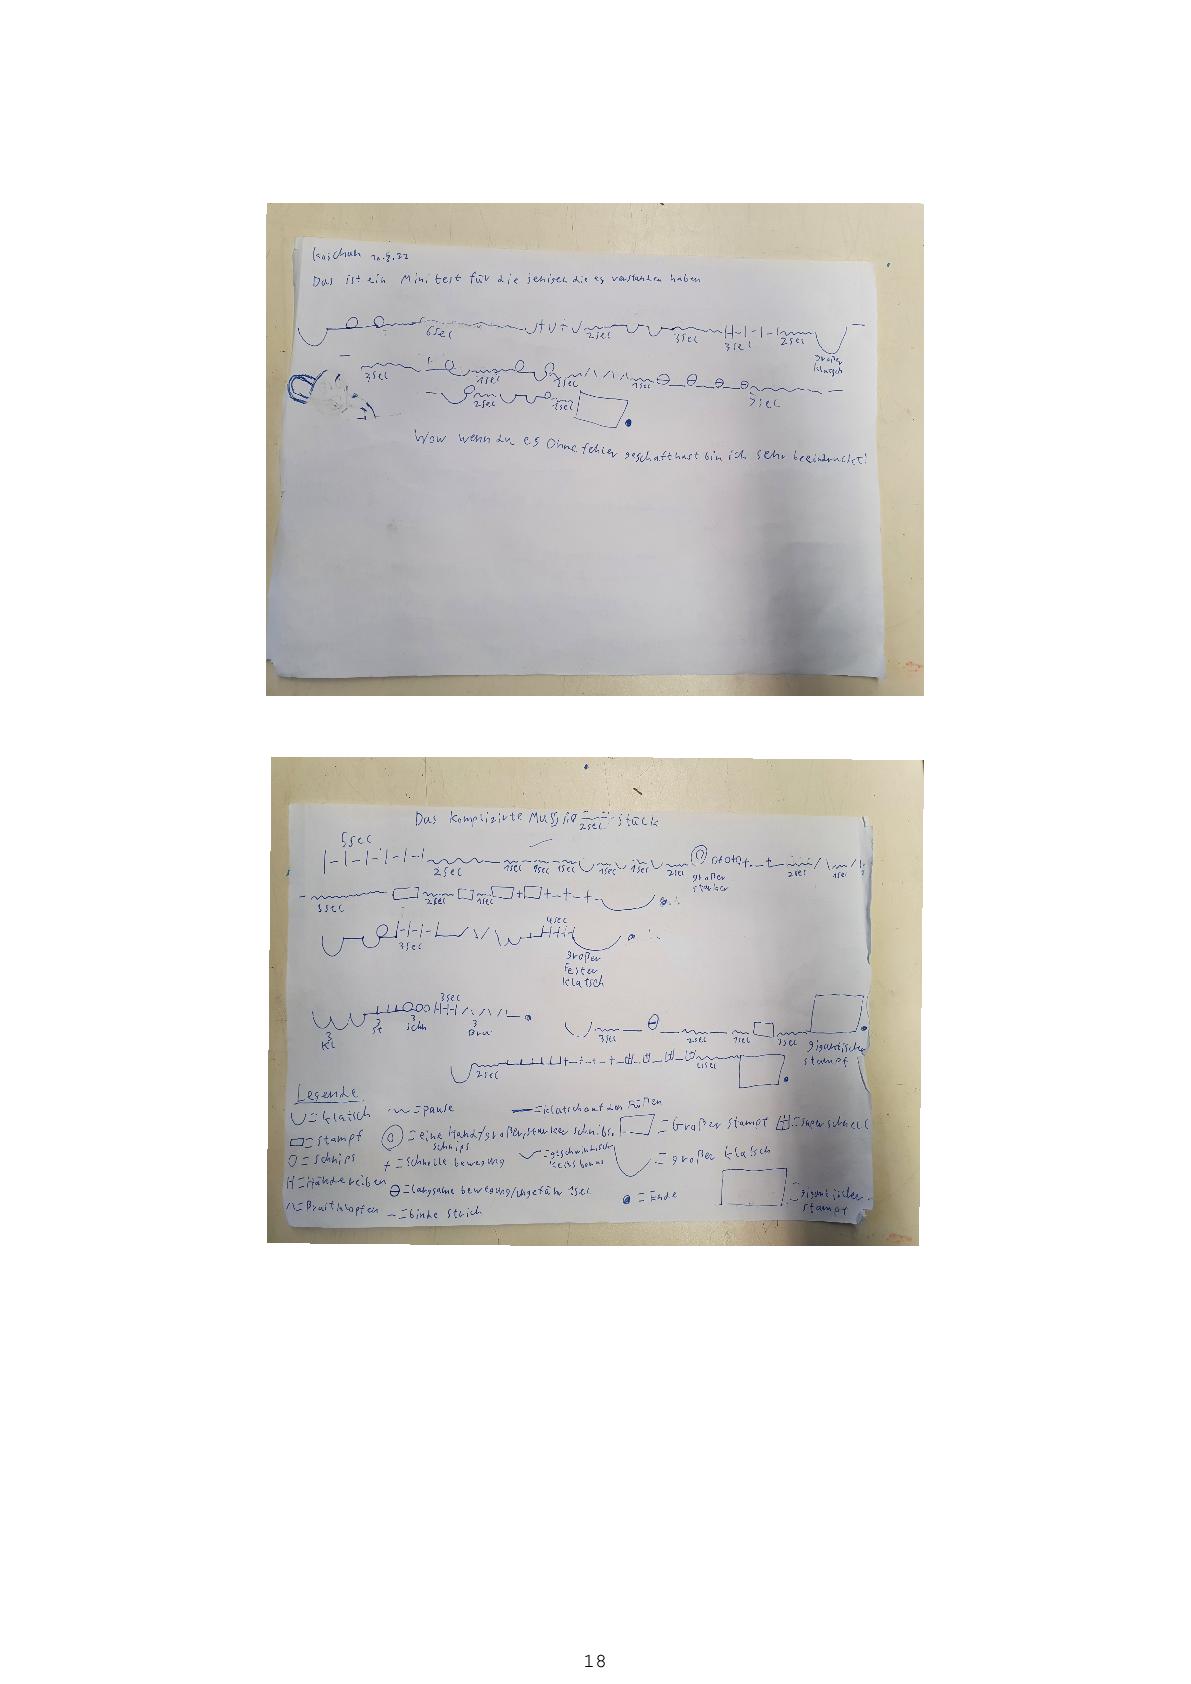 Das ist ein Mini test für die jenigen die es verstanden haben
6sec 2sec 3sec 3sec 2sec
großer
klatsch
3sec 1sec 1sec 1sec 7sec
2sec 1sec
Wow wenn du es Ohne fehler geschafthast bin ich sehr beeindruckt!
Das komplizirte stück
2sec
5sec
2sec 1sec 1sec 1sec 1sec 1sec 2sec großer 2sec 1sec
starker
3sec 2sec 1sec
4sec
3sec
großer
Fester
klatsch
3sec
3 3 3 3
Kl St Schn Bru
3sec 2sec 1sec 1sec gigantischer
stampf
2sec 2sec
Legende
= klatsch = pause = klatsch auf den Füßen
= stampf = eine Hand/großer, starker schnibs. = Großer stampf = super schnell
schnips
= schnips + = schnelle bewegung = großer klatsch
H = Händereiben = langsame bewegung/ungefähr 1sec = Ende = gigantischer
stampf
= Brustklopfen - = binde strich
18